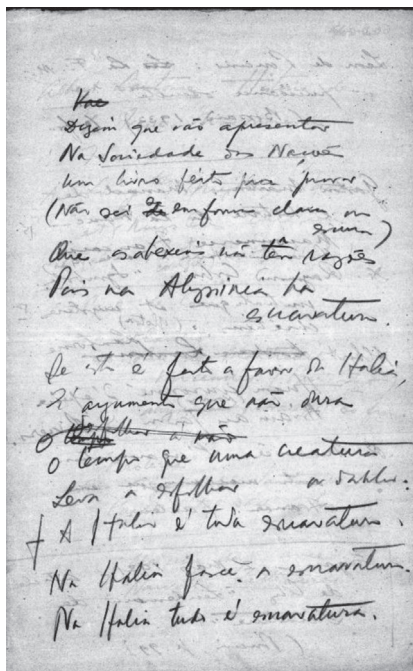 Vae
Dizem que vão apresentar
Na Sociedade das Nações
Um livro feito para provar
(Não sei se em forma clara ou
escura)
Que os abexins não têm razões
Pois na Abyssinia ha
escravatura.
Se isto é feito a favor da Italia,
É argumento que não dura
O tempo que uma creatura
Leva a esfolhar a dahlia.
A Italia é toda escravatura.
Na Italia fasce a escravatura.
Na Italia tudo é escravatura.